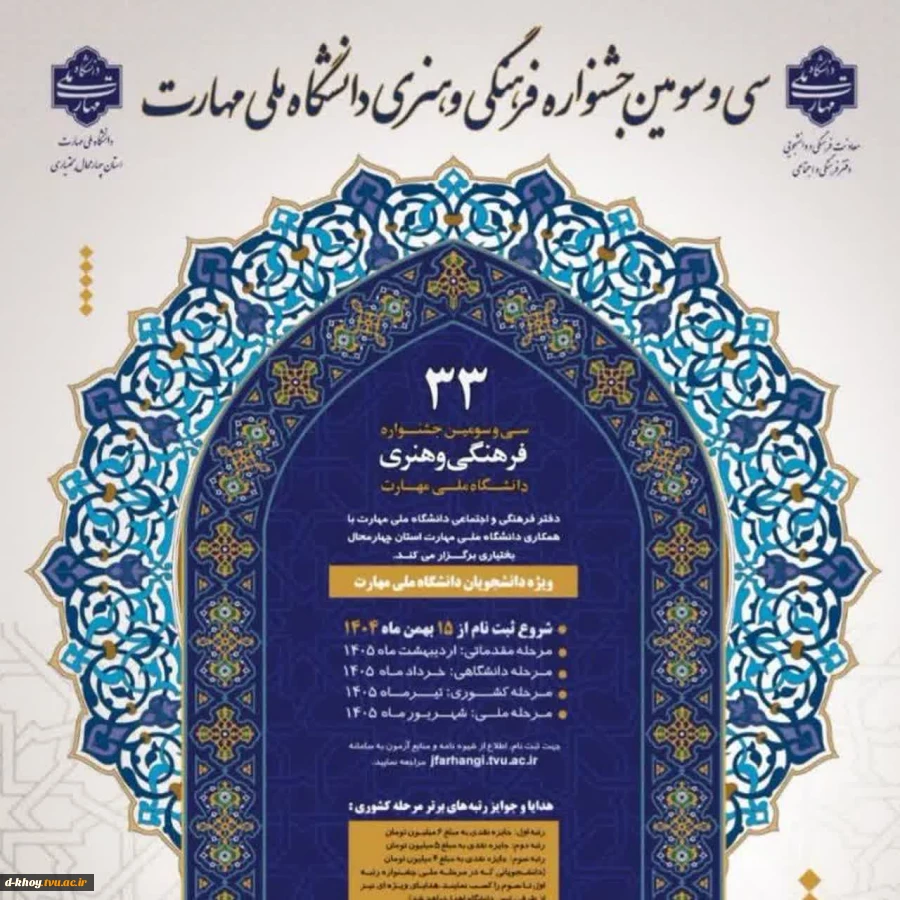 سی و سومین جشنواره فرهنگی و هنری دانشگاه ملی مهارت
دانشگاه ملی مهارت
معاونت فرهنگی و دانشجویی
دفتر فرهنگی و اجتماعی
دانشگاه ملی مهارت
دانشگاه ملی مهارت
استان چهارمحال و بختیاری
۳۳
سی و سومین جشنواره
فرهنگی و هنری
دانشگاه ملی مهارت
دفتر فرهنگی و اجتماعی دانشگاه ملی مهارت با
همکاری دانشگاه ملی مهارت استان چهارمحال
بختیاری برگزار می کند.
ویژه دانشجویان دانشگاه ملی مهارت
شروع ثبت نام از ۱۵ بهمن ماه ۱۴۰۴
مرحله مقدماتی: اردیبهشت ماه ۱۴۰۵
مرحله دانشگاهی: خرداد ماه ۱۴۰۵
مرحله کشوری: تیر ماه ۱۴۰۵
مرحله ملی: شهریور ماه ۱۴۰۵
جهت ثبت نام، اطلاع از شیوه نامه و منابع آزمون به سامانه
jfarhangi.tvu.ac.ir مراجعه نمایید.
هدایا و جوایز رتبه های برتر مرحله کشوری :
رتبه اول: جایزه نقدی به مبلغ ۶ میلیون تومان
رتبه دوم: جایزه نقدی به مبلغ ۵ میلیون تومان
رتبه سوم: جایزه نقدی به مبلغ ۴ میلیون تومان
(دانشجویانی که در مرحله ملی جشنواره رتبه
اول تا سوم را کسب نمایند هدایای ویژه ای نیز
d-khoy.tvu.ac.ir